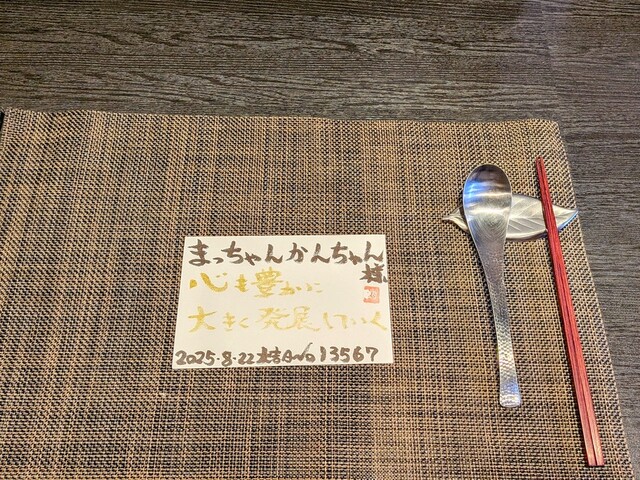 まっちゃんかんちゃん
様
心も豊かに
大きく発展していく
2025.8.22 大吉日 No 13567